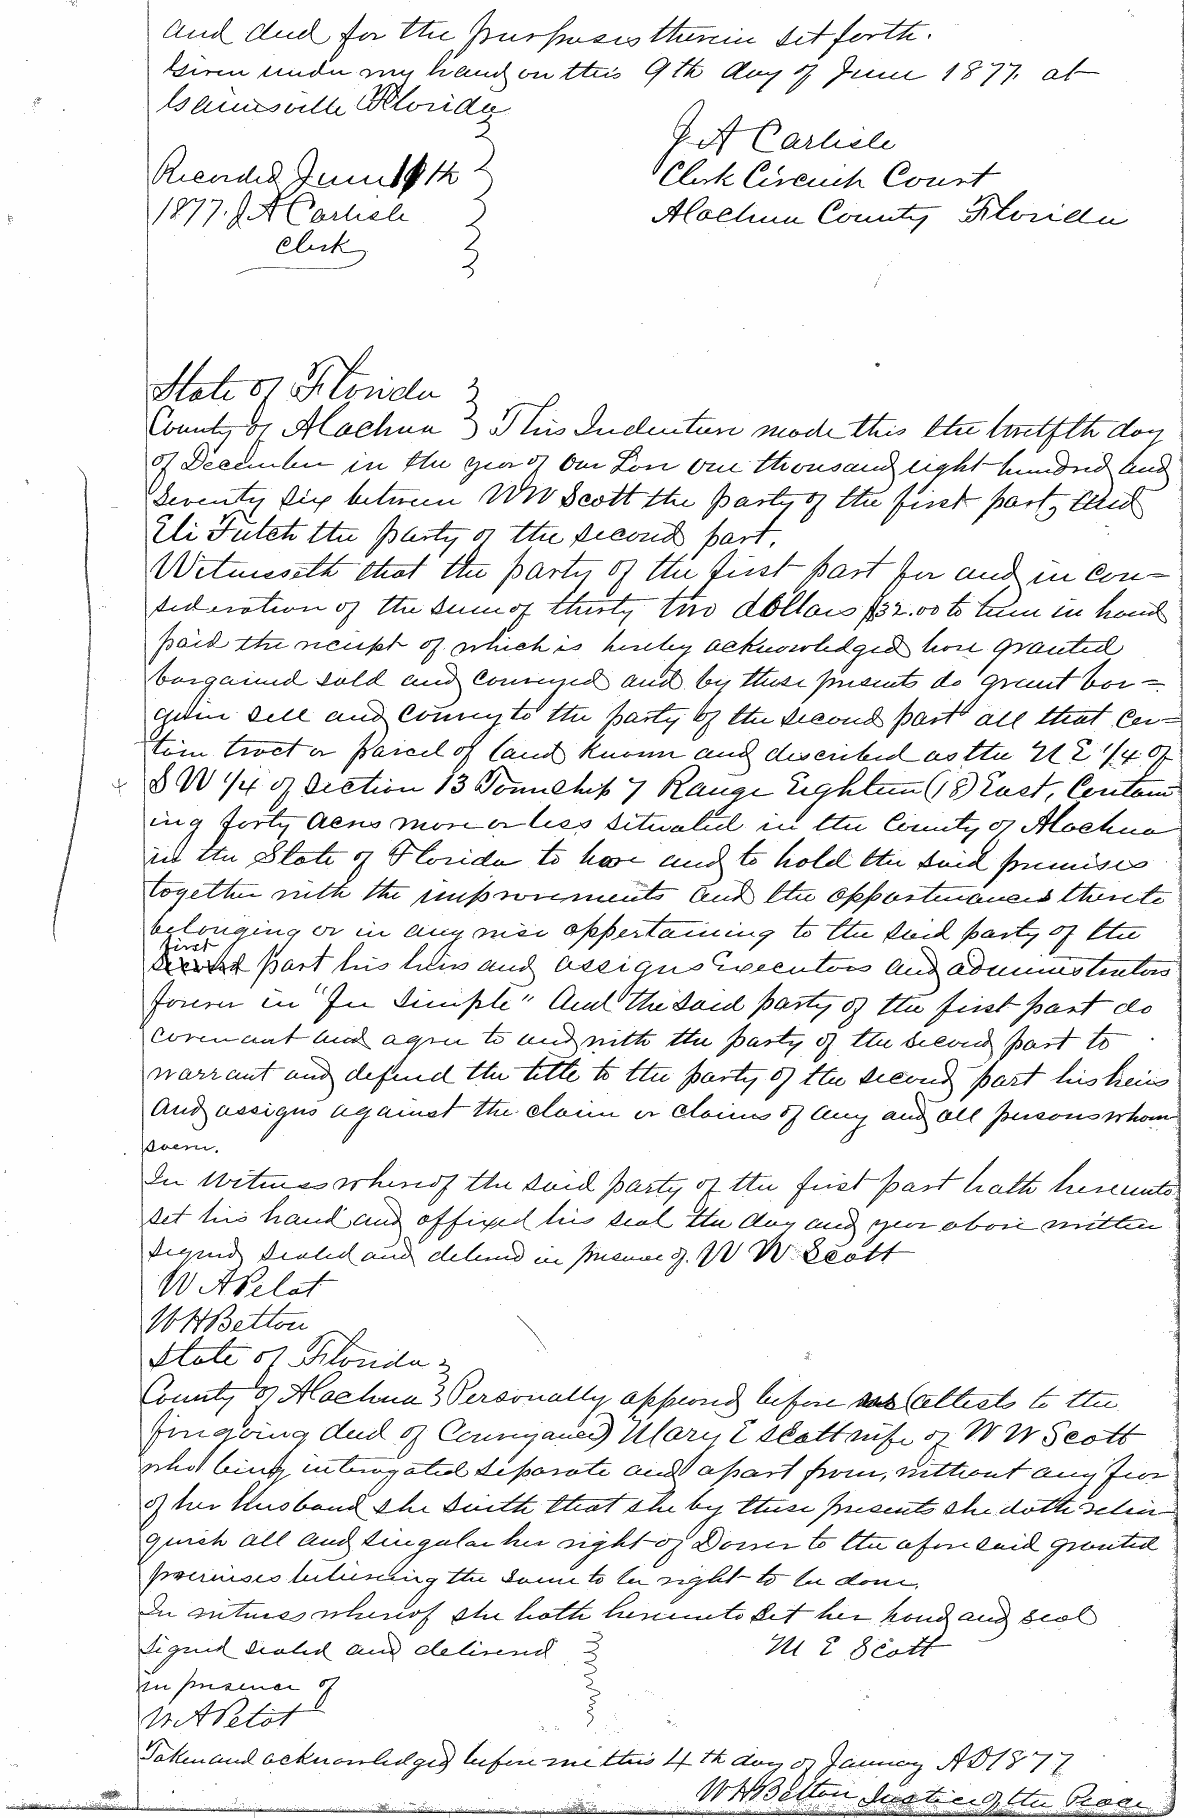 and deed for the purposes therein set forth.
Given under my hand on this 9th day of June 1877. at
Gainesville Florida
J A Carlisle
Clerk Circuit Court
Alachua County Florida
Recorded June 19th
1877. J A Carlisle
Clerk
State of Florida
County of Alachua This Indenture made this the twelfth day
of December in the year of our Lor one thousand eight hundred and
Seventy Six between W W Scott the party of the first part, and
Eli Futch the party of the second part.
Witnesseth that the party of the first part for and in con=
sideration of the sum of thirty two dollars $32.00 to him in hand
paid the receipt of which is hereby acknowledged have granted
bargained sold and conveyed and by these presents do grant bar=
gain sell and convey to the party of the second part all that Cer=
tain tract or parcel of land known and described as the N E 1/4 of
S W 1/4 of Section 13 Township 7 Range Eighteen (18) East, Contain
ing forty acres more or less situated in the County of Alachua
in the State of Florida to have and to hold the said premises
together with the improvements and the appurtenances thereto
belonging or in any wise appertaining to the said party of the
first
second part his heirs and assigns Executors and administrators
forever in "Fee Simple" And the said party of the first part do
covenant and agree to and with the party of the second part to
warrant and defend the title to the party of the second part his heirs
and assigns against the claim or claims of any and all persons whom
soever.
In Witness whereof the said party of the first part hath hereunto
set his hand and affixed his seal the day and year above written
Signed sealed and delivered in presence of. W W Scott
W A Pelot
W H Betton
State of Florida
County of Alachua Personally appeared before (attests to the
foregoing deed of Conveyance) Mary E Scott wife of W W Scott
who being interogated separate and apart from, without any fear
of her husband she saith that she by these presents she doth relin
quish all and singular her right of Dower to the afore said granted
premises believing the same to be right to be done.
In witness whereof she hath hereunto set her hand and seal
Signed sealed and delivered M E Scott
in presence of
W A Pelot
Taken and acknowledged before me this 4th day of January AD 1877
W H Betton Justice of the Peace